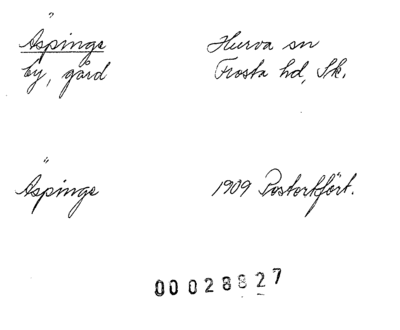 Äspinge Hurva sn
by, gård Frosta hd, Sk.
Äspinge 1909 Postortfört.
00028827